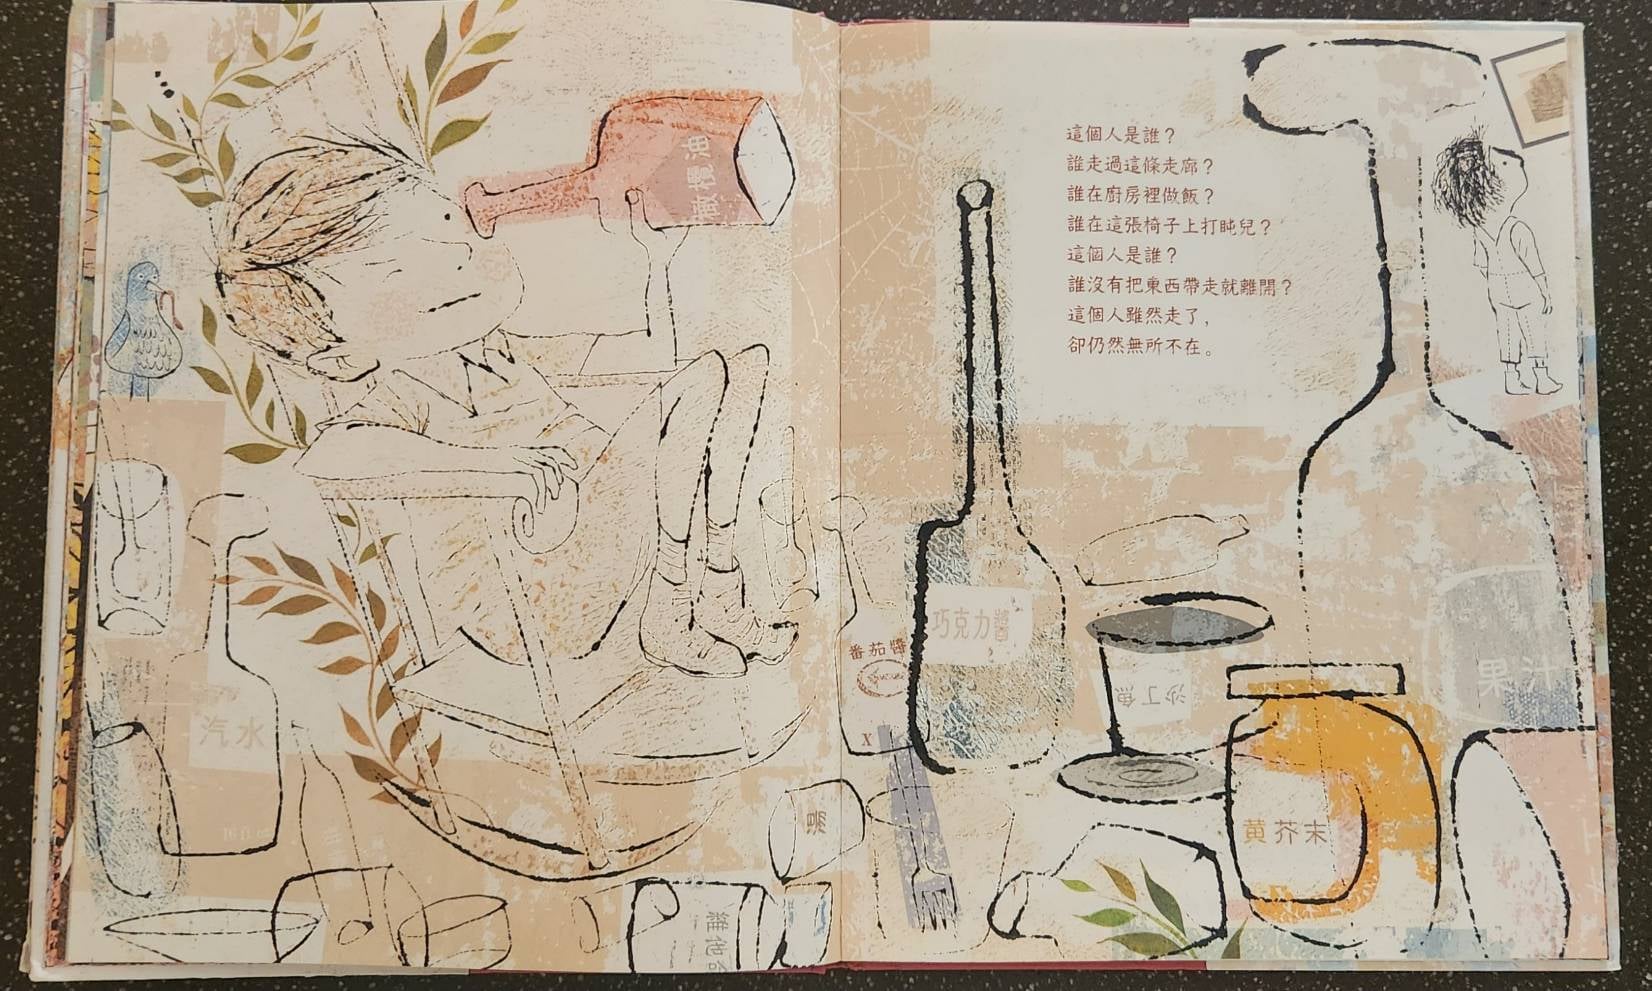 汽水
湯
這個人是誰？
誰走過這條走廊？
誰在廚房裡做飯？
誰在這張椅子上打盹兒？
這個人是誰？
誰沒有把東西帶走就離開？
這個人雖然走了，
卻仍然無所不在。
巧克力醬
番茄醬
X
沙丁魚
果汁
黄芥末